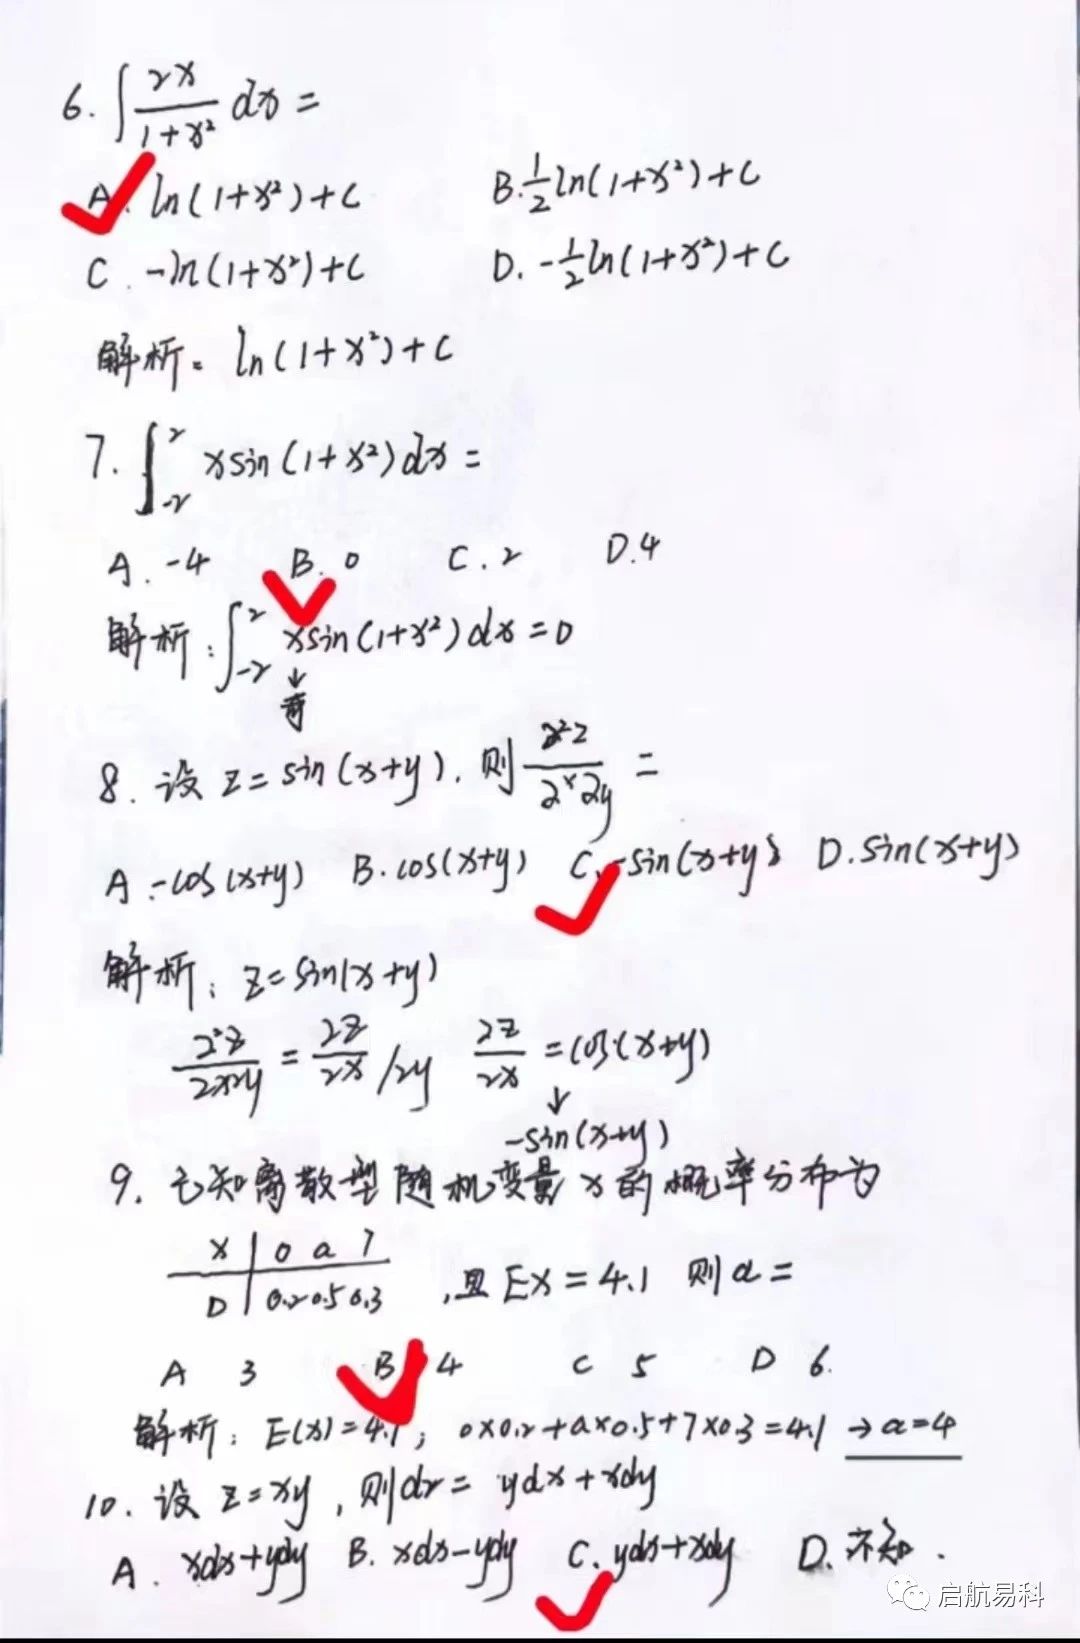 6. ∫ 2x/(1+x²) dx =
A. ln(1+x²)+C B. ½ln(1+x²)+C
C. -ln(1+x²)+C D. -½ln(1+x²)+C
解析: ln(1+x²)+C
7. ∫₋₂² xsin(1+x²)dx =
A. -4 B. 0 C. 2 D. 4
解析: ∫₋₂² xsin(1+x²)dx = 0
↓
奇
8. 设 z = sin(x+y), 则 ∂²z/∂x∂y =
A. -cos(x+y) B. cos(x+y) C. -sin(x+y) D. sin(x+y)
解析: z = sin(x+y)
∂²z/∂x∂y = ∂z/∂x /∂y ∂z/∂x = cos(x+y)
↓
-sin(x+y)
9. 已知离散型随机变量x的概率分布为
x | 0 a 7
P | 0.2 0.5 0.3 , 且 Ex = 4.1 则 a =
A 3 B 4 C 5 D 6.
解析: E(x)=4.1; 0×0.2+a×0.5+7×0.3=4.1 → a=4
10. 设 z=xy, 则dz = ydx+xdy
A. xdx+ydy B. xdx-ydy C. ydx+xdy D. 不知.
启航易科